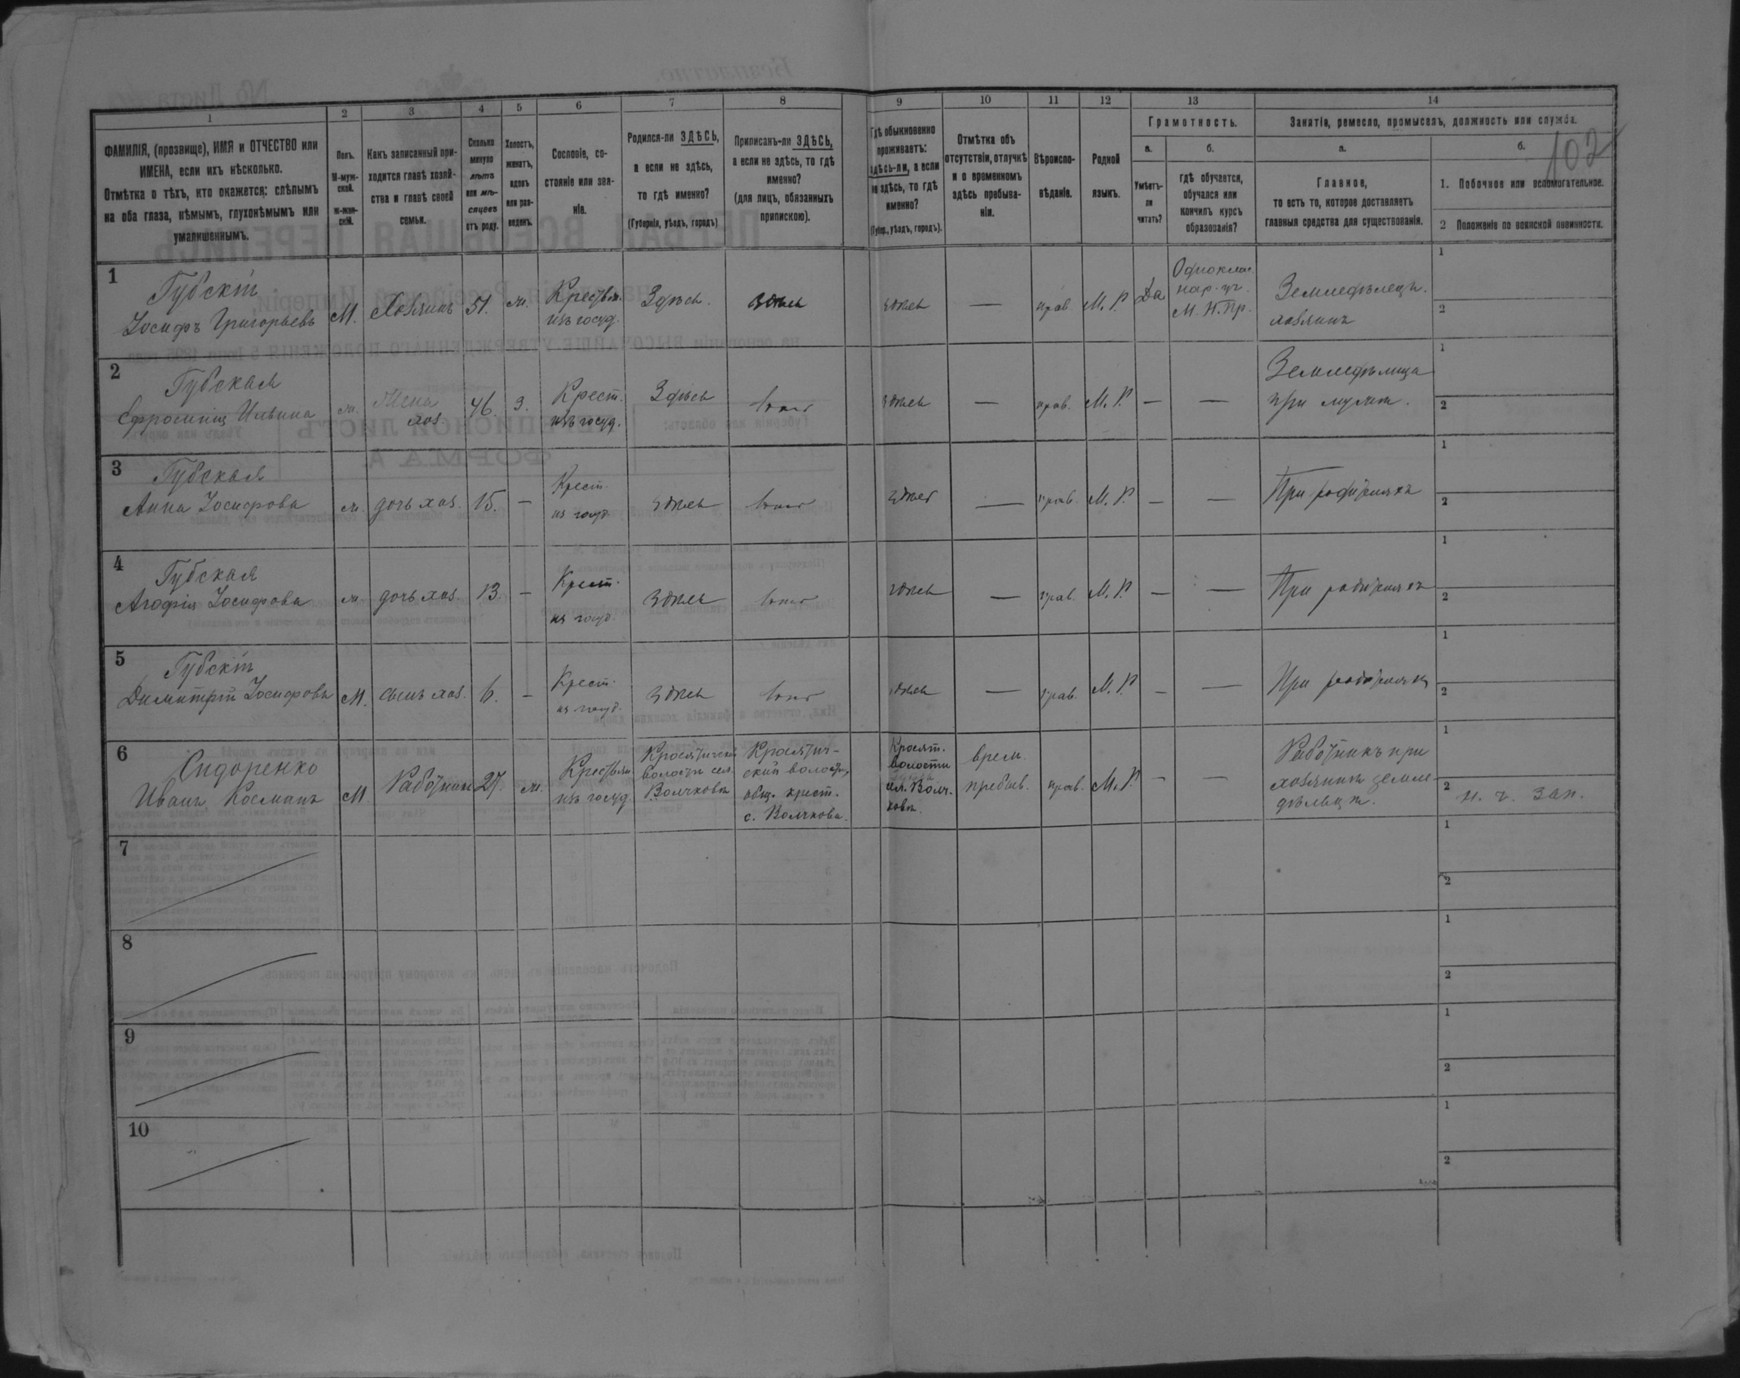 102
1 2 3 4 5 6 7 8 9 10 11 12 13 14
ФАМИЛІЯ, (прозвище), ИМЯ и ОТЧЕСТВО или
ИМЕНА, если ихъ нѣсколько.
Отмѣтка о тѣхъ, кто окажется: слѣпымъ
на оба глаза, нѣмымъ, глухонѣмымъ или
умалишеннымъ.
Полъ.
М-муж-
ской.
Ж-жен-
скій.
Какъ записанный при-
ходится главѣ хозяй-
ства и главѣ своей
семьи.
Сколько
минуло
лѣтъ
или мѣ-
сяцевъ
отъ роду.
Холостъ,
женатъ,
вдовъ
или раз-
веденъ.
Сословіе, со-
стояніе или зва-
ніе.
Родился-ли ЗДѢСЬ,
а если не здѣсь,
то гдѣ именно?
(Губернія, уѣздъ, городъ)
Приписанъ-ли ЗДѢСЬ,
а если не здѣсь, то гдѣ
именно?
(для лицъ, обязанныхъ
припискою).
Гдѣ обыкновенно
проживаетъ:
здѣсь-ли, а если
не здѣсь, то гдѣ
именно?
(Губер., уѣздъ, городъ).
Отмѣтка объ
отсутствіи, отлучкѣ
и о временномъ
здѣсь пребыва-
ніи.
Вѣроиспо-
вѣданіе.
Родной
языкъ.
Грамотность.
а.
Умѣетъ-
ли
читать?
б.
гдѣ обучается,
обучался или
кончилъ курсъ
образованія?
Занятія, ремесло, промыселъ, должность или служба.
а.
Главное,
то есть то, которое доставляетъ
главныя средства для существованія.
б.
1. Побочное или вспомогательное.
2 Положеніе по воинской повинности.
1
Губскій
Іосифъ Григорьевъ
М. Хозяинъ 51. ж.
Крестьян.
изъ госуд.
Здѣсь. здѣсь здѣсь — прав М. Р. Да
Однокла.
нар. уч.
М. Н. Пр.
Земледѣлецъ.
хозяинъ
1
2
2
Губская
Ефросинія Ильина
ж. Жена
хоз
46. з.
Крест.
изъ госуд.
Здѣсь здѣсь — прав. М. Р. — —
Земледѣлица
при мужѣ.
1
2
3
Губская
Анна Іосифова
ж. дочь хоз. 15. —
Крест.
из госуд.
здѣсь здѣсь — прав. М. Р. — —
При родителяхъ
1
2
4
Губская
Агафія Іосифова
ж. дочь хоз. 13 —
Крест.
из госуд.
здѣсь здѣсь — прав. М. Р. — —
При родителяхъ
1
2
5
Губскій
Димитрій Іосифовъ
М. сынъ хоз. 6. —
Крест.
из госуд.
здѣсь здѣсь — прав. М. Р. — —
При родителяхъ
1
2
6
Сидоренко
Иванъ Косминъ
М Работникъ 27. ж.
Крестьян
изъ госуд
волости сел.
Волчковъ
ской волости,
общ. крест.
с. Волчкова.
волости
сел. Волч-
кова.
врем.
пребыв.
прав. М. Р. — —
Работникъ при
хозяинѣ земле-
дѣльцѣ.
1
2 н. ч. зап.
7
1
2
8
1
2
9
1
2
10
1
2